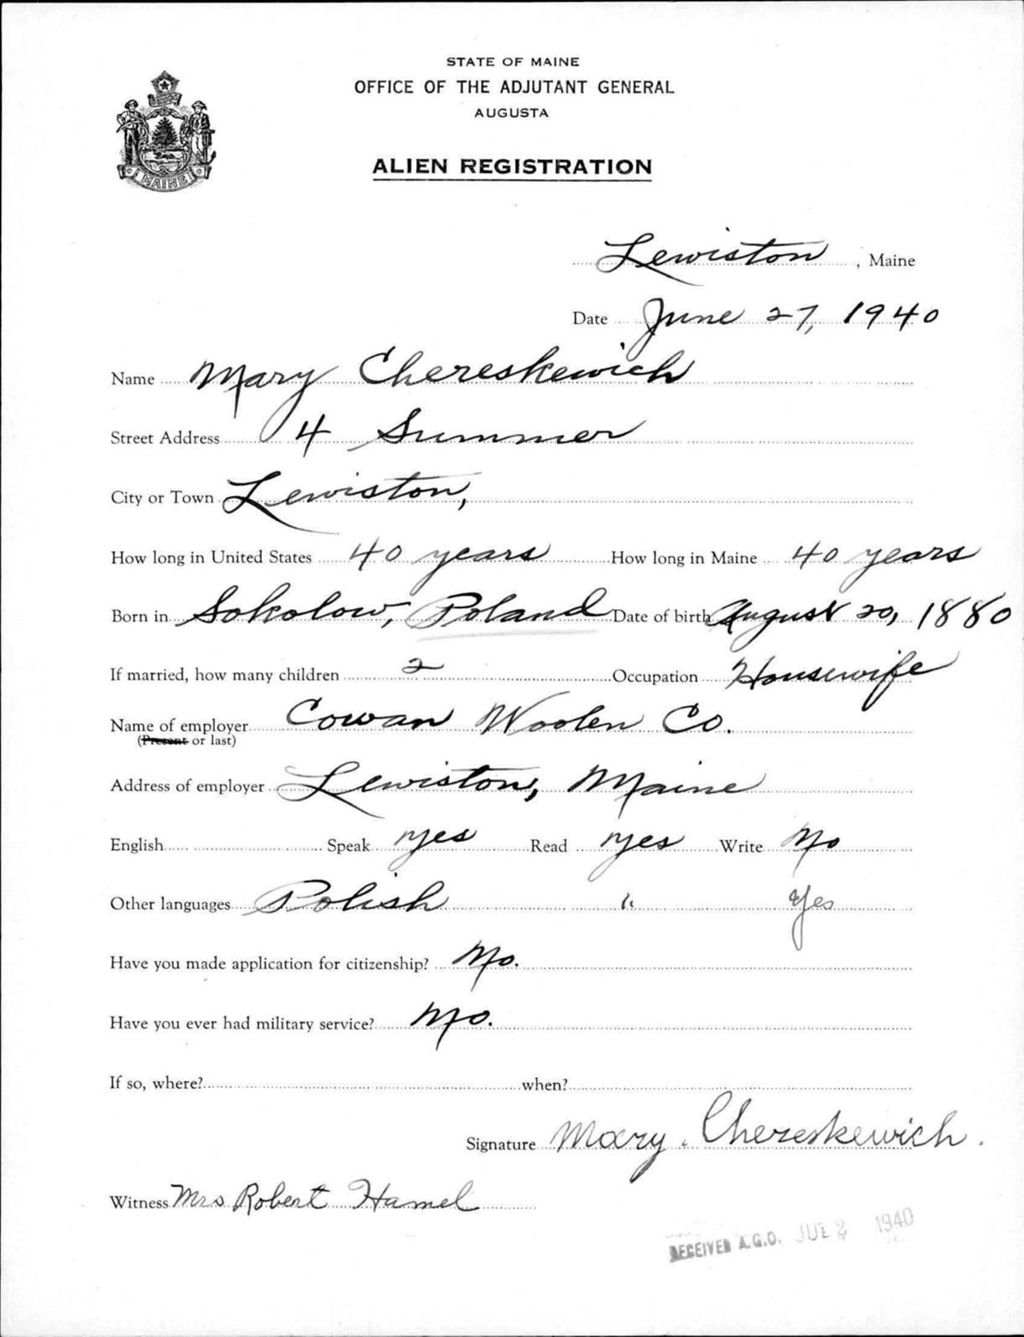 STATE OF MAINE
OFFICE OF THE ADJUTANT GENERAL
AUGUSTA
ALIEN REGISTRATION
MAINE
Lewiston, Maine
Date June 27, 1940
Name Mary Chereskewich
Street Address 4 Summer
City or Town Lewiston,
How long in United States 40 years How long in Maine 40 years
Born in Sokolow, Poland Date of birth August 20, 1880
If married, how many children 2 Occupation Housewife
Name of employer Cowan Woolen Co.
(Present or last)
Address of employer Lewiston, Maine
English Speak yes Read yes Write No
Other languages Polish " Yes
Have you made application for citizenship? No.
Have you ever had military service? No.
If so, where? when?
Signature Mary Chereskewich.
Witness Mrs Robert Hamel
RECEIVED A.G.O. JUL 2 1940